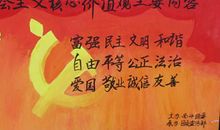 会主义核心价值观主要内容
富强 民主 文明 和谐
自由 平等 公正 法治
爱国 敬业 诚信 友善